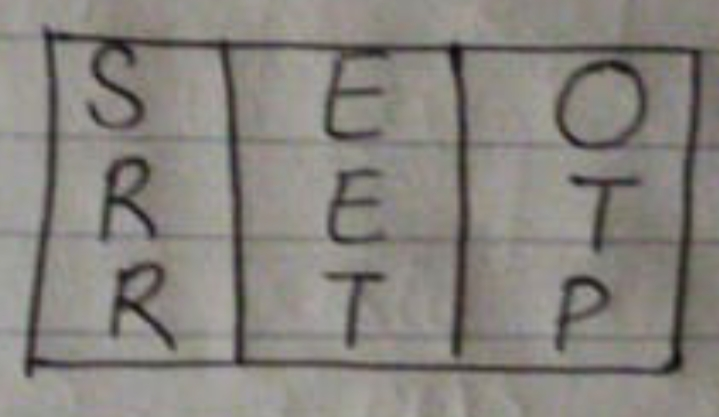 S E O
R E T
R T P